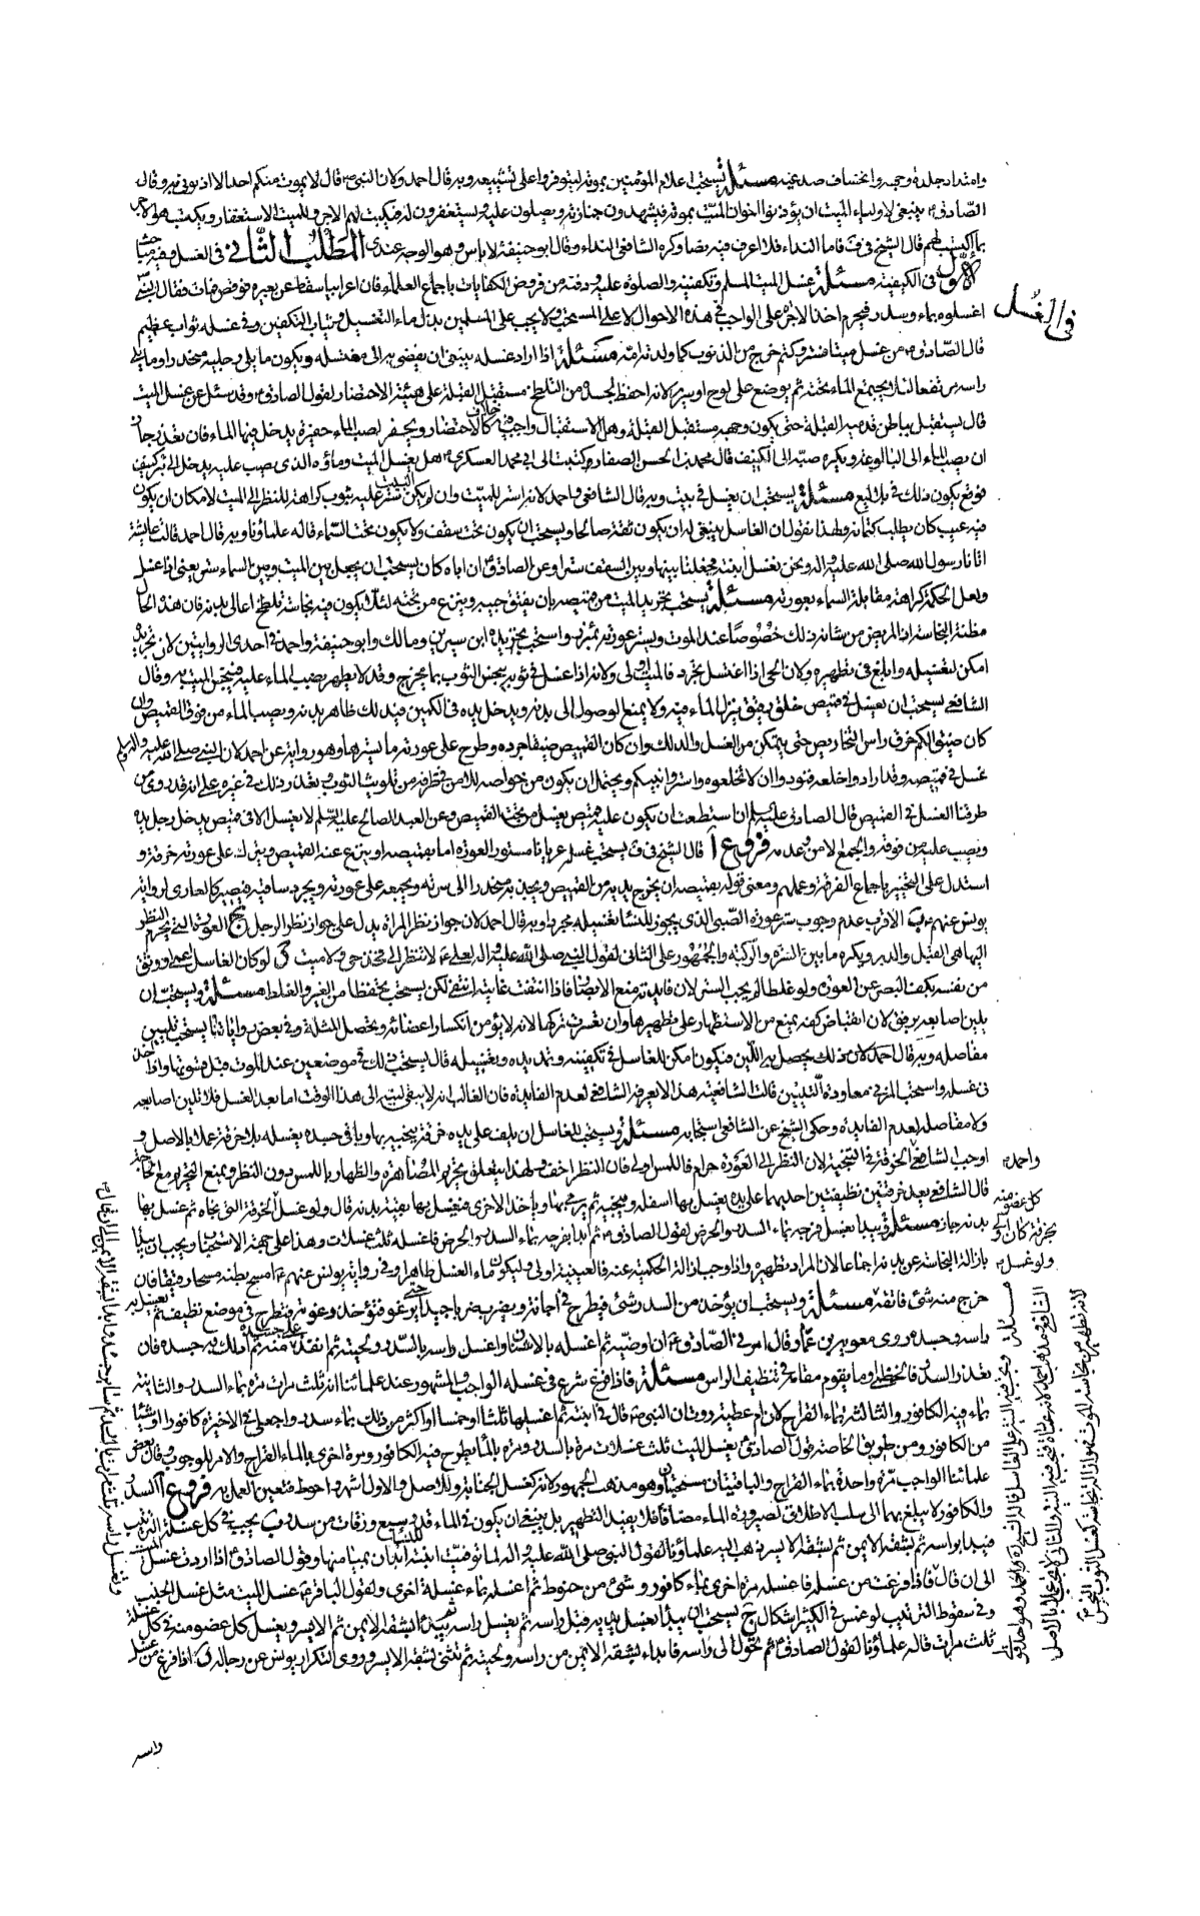 وامتداد جلدة وجهه وانخساف صدغيه مسئلة يستحب اعلام المؤمنين بموته ليتوفروا على تشييعه وبه قال احمد وكان النبي ص قال لا يموت منكم احد الا اذنتموني به وقال
الصادق ع ينبغي لاولياء الميت ان يؤذنوا اخوان الميت بموته فيشهدون جنازته ويصلون عليه ويستغفرون له فيكتب لهم الاجر وللميت الاستغفار ويكتسب هو الاجر
بما اكتسب لهم قال الشيخ في ف فاما النداء فلا اعرف فيه نصا وكره الشافعي النداء وقال ابو حنيفة لا باس وهو الوجه عندي المطلب الثاني في الغسل وفيه مباحث
الاول في الكيفية مسئلة غسل الميت المسلم وتكفينه والصلوة عليه ودفنه من فروض الكفايات باجماع العلماء فان اعرابيا سقط عن بعيره فوقص فمات فقال النبي ص
في الغسل
اغسلوه بماء وسدر فيحرم اخذ الاجرة على الواجب في هذه الاحوال لا على المستحب ولا يجب على المسلمين بذل ماء التغسيل وثياب التكفين وفي غسله ثواب عظيم
قال الصادق ع من غسل ميتا فستر وكتم خرج من الذنوب كما ولدته امه مسئلة اذا اراد غسله ينبغي ان يفضي به الى مغتسله ويكون ما يلي رجليه منحدرا وما يلي
راسه مرتفعا لئلا يجتمع الماء تحته ثم يوضع على لوح او سرير لانه احفظ لجسده من التلطخ مستقبل القبلة على هيئة الاحتضار لقول الصادق ع وقد سئل عن غسل الميت
قال يستقبل بباطن قدميه القبلة حتى يكون وجهه مستقبل القبلة وهل الاستقبال واجب فيه خلاف كالاحتضار ويحفر لصب الماء حفيرة يدخل فيها الماء فان تعذر جاز
ان يصب الماء الى البالوعة ويكره صبه الى الكنيف قال محمد بن الحسن الصفار وكتبت الى ابي محمد العسكري ع هل يغسل الميت وماؤه الذي يصب عليه يدخل الى بئر كنيف
فوقع يكون ذلك في بلاليع مسئلة يستحب ان يغسل في بيت وبه قال الشافعي واحمد لانه استر للميت وان لم يكن ستر عليه بثوب كراهة للنظر الى الميت لامكان ان يكون
فيه عيب كان يطلب كتمانه ولهذا نقول ان الغاسل ينبغي له ان يكون ثقة صالحا ويستحب ان يكون تحت سقف ولا يكون تحت السماء قاله علماؤنا وبه قال احمد قالت عايشة
اتانا رسول الله صلى الله عليه واله ونحن نغسل ابنته فجعلنا بينها وبين السقف سترا وعن الصادق ع ان اباه كان يستحب ان يجعل بين الميت وبين السماء ستر يعني اذا غسل
ولعل الحكمة كراهة مقابلة السماء بعورته مسئلة يستحب تجريد الميت من قميصه بان يفتق جيبه وينزع من تحته لئلا يكون فيه نجاسة تلطخ اعالي بدنه فان هذه الحال
مظنة النجاسة اذ المريض من شانه ذلك خصوصا عند الموت ويستر عورته بمئزر واستحب تجريده ابن سيرين ومالك وابو حنيفة واحمد في احدى الروايتين لان تجريده
امكن لتغسيله وابلغ في تطهيره ولان الحي اذا اغتسل تجرد فالميت اولى ولانه اذا غسل في ثوبه ينجس الثوب بما يخرج وقد لا يطهر بصب الماء عليه فينجس الميت به وقال
الشافعي يستحب ان يغسل في قميص خلق رقيق ينزل الماء فيه ولا يمنع الوصول الى بدنه ويدخل يده في الكمين فيدلك ظاهر بدنه ويصب الماء من فوق القميص وان
كان ضيق الكم خرق راس التخاريص حتى يتمكن من الغسل والدلك وان كان القميص ضيقا جرده وطرح على عورته ما يسترها وهو رواية عن احمد لان النبي صلى الله عليه واله وسلم
غسل في قميصه وقد ارادوا خلعه فنودوا ان لا تخلعوه واستروا نبيكم ويحتمل ان يكون من خواصه للامن في طرفه من تلويث الثوب وتعذر ذلك في غيره على انه قد روى من
طرقنا الغسل في القميص قال الصادق عليه السلم ان استطعت ان يكون عليه قميص يغسل من تحت القميص وعن العبد الصالح عليه السلم لا يغسل الا في قميص يدخل رجل يده
ويصب عليه من فوقه والجمع الامن وعدمه فروع ا قال الشيخ في ف يستحب غسله عريانا مستور العورة اما بقميصه او ينزع عنه القميص ويترك على عورته خرقة و
استدل على التخيير باجماع الفرقة وعملهم ومعنى قوله بقميصه ان يخرج يديه من القميص ويجذبه منحدرا الى سرته ويجمعه على عورته ويجرد ساقيه فيصير كالعاري لرواية
يونس عنهم ع ب الاقرب عدم وجوب ستر عورة الصبي الذي يجوز للنساء تغسيله مجردا وبه قال احمد لان جواز نظر المراة يدل على جواز نظر الرجل ج العورة التي يحرم النظر
اليها هي القبل والدبر ويكره ما بين السرة والركبة والجمهور على الثاني لقول النبي صلى الله عليه واله لعلي ع لا تنظر الى فخذ حي ولا ميت د لو كان الغاسل اعمى او وثق
من نفسه بكف البصر عن العورة ولو غلطا لم يجب الستر لان فايدته منع الابصار فاذا انتفت غايته انتفى لكن يستحب تحفظا من الغير والغلط مسئلة ويستحب ان
يلين اصابعه برفق لان انقباض كفه يمنع من الاستظهار على تطهيرها وان تعسرت تركها لانه لا يؤمن انكسار اعضائه وتحصل المثلة وفي بعض رواياتنا يستحب تليين
مفاصله وبه قال احمد لان ذلك يحصل به اللين فيكون امكن للغاسل في تكفينه وتمديده وتغسيله قال يستحب ذلك في موضعين عند الموت قبل قسوتها واذا اخذ
في غسله واستحب المزني معاودة التليين قالت الشافعية هذا لا يعرفه الشافعي لعدم الفايدة فان الغالب انه لا يبقى لينه الى هذا الوقت اما بعد الغسل فلا تلين اصابعه
ولا مفاصله لعدم الفايدة وحكى الشيخ عن الشافعي استحبابه مسئلة ويستحب للغاسل ان يلف على يده خرقة ينجيه بها وباقي جسده يغسله بلا خرقة عملا بالاصل و
اوجب الشافعي الخرقة في التنجية لان النظر الى العورة حرام فاللمس اولى فان النظر اخف ولهذا يتعلق تحريم المصاهرة والظهار باللمس دون النظر ويمنع التحريم مع الحاجة
قال الشافعي يعد خرقتين نظيفتين احديهما على يده يغسل بها اسفله وينجيه ثم يرمي بها وياخذ الاخرى فيغسل بها بقية بدنه قال ولو غسل الخرقة التي نجاه ثم غسل بها
بدنه جاز مسئلة ويبدا بغسل فرجه بماء السدر والحرض لقول الصادق ع ثم ابدا بفرجه بماء السدر والحرض فاغسله ثلث غسلات وهذا على جهة الاستحباب ويجب ان يبدا
بازالة النجاسة عن بدنه اجماعا لان المراد تطهيره واذا وجب ازالة الحكمية عنه فالعينية اولى وليكون ماء الغسل طاهرا وفي رواية يونس عنهم ع امسح بطنه مسحا رفيقا فان
خرج منه شئ فانقه مسئلة ويستحب ان يؤخذ من السدر شئ فيطرح في اجانة ويضرب ضربا جيدا حتى يرغو فتؤخذ رغوته وتطرح في موضع نظيف ثم يغسل به
راسه وجسده روى معوية بن عمار قال امرني الصادق ع ان اوضيه ثم اغسله بالاشنان واغسل راسه بالسدر ولحيته ثم افيضه على جسده منه ثم ادلك به جسده فان
تعذر السدر فالخطمي او ما يقوم مقامه في تنظيف الراس مسئلة فاذا فرغ شرع في غسله الواجب والمشهور عند علمائنا انه ثلث مرات مرة بماء السدر والثانية
بماء فيه الكافور والثالثة بماء القراح لان ام عطية روت ان النبي ص قال في ابنته ثم اغسليها ثلثا او خمسا او اكثر من ذلك بماء سدر واجعلي في الاخيرة كافورا او شيئا
من الكافور ومن طريق الخاصة قول الصادق ع يغسل الميت ثلث غسلات مرة بالسدر ومرة بالماء يطرح فيه الكافور ومرة اخرى بالماء القراح والامر للوجوب وقال بعض
علمائنا الواجب مرة واحدة بماء القراح والباقيتان مستحبتان وهو مذهب الجمهور لانه كغسل الجنابة وللاصل والاول اشهر واحوط فتعين العمل به فروع ا السدر
والكافور لا يبلغ بهما الى سلب الاطلاق لصيرورة الماء مضافا فلا يفيد التطهير بل ينبغي ان يكون في الماء قدر سبع ورقات من سدر ب يجب في كل غسلة الترتيب
فيبدا براسه ثم بشقه الايمن ثم بشقه الايسر ذهب اليه علماؤنا لقول النبي صلى الله عليه واله لما توفيت ابنته للنساء ابدان بميامنها وقول الصادق ع اذا اردت غسل الميت
الى ان قال فاذا فرغت من غسله فاغسله مرة اخرى بماء كافور وشئ من حنوط ثم اغسله بماء غسلة اخرى ولقول الباقر ع غسل الميت مثل غسل الجنب
وفي سقوط الترتيب لو غمس في الكثير اشكال ج يستحب ان يبدا بغسل يديه قبل راسه ثم يغسل راسه ثم يبدا بشقه الايمن ثم الايسر ويغسل كل عضو منه في كل غسلة
ثلث مرات قاله علماؤنا لقول الصادق ع ثم تحول الى راسه فابداء بشقه الايمن من راسه ولحيته ثم تثني بشقه الايسر وروى التكرار يونس عن رجاله فاذا فرغ من غسل
راسه